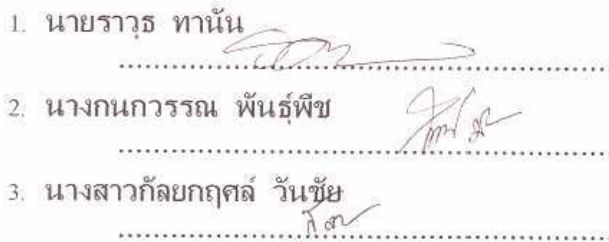 1. นายราวุธ ทานัน
2. นางกนกวรรณ พันธุ์พืช
3. นางสาวกัลยกฤศล์ วันชัย